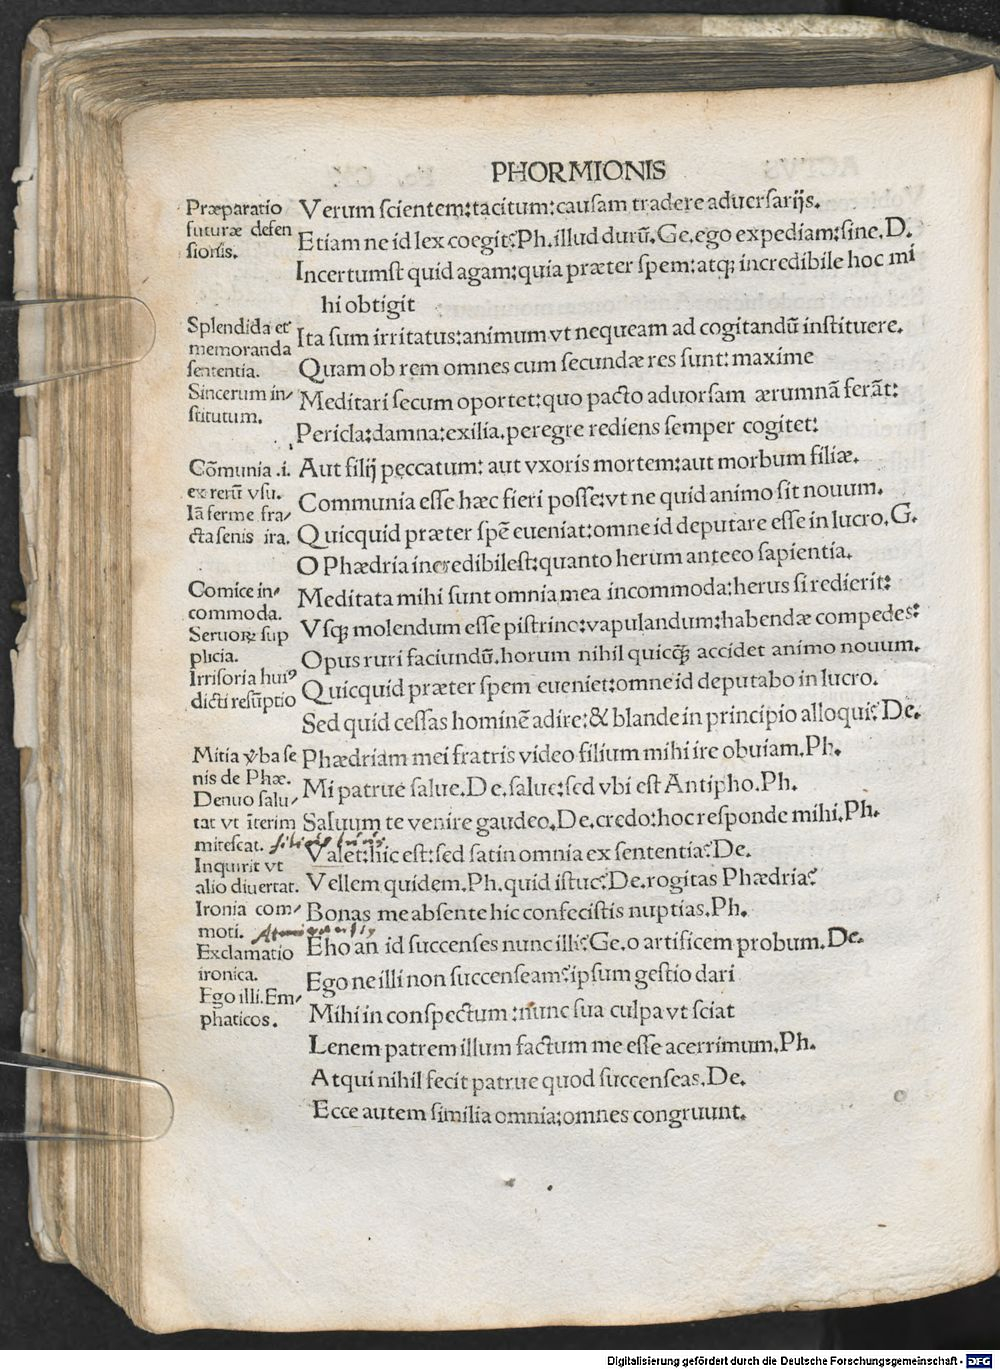 PHORMIONIS
Præparatio
futuræ defen
sionis.
Splendida et
memoranda
sententia.
Sincerum in/
stitutum.
Cõmunia .i.
ex rerũ vsu.
Iã ferme fra/
cta senis ira.
Comice in/
commoda.
Seruoꝝ sup
plicia.
Irrisoria huiꝰ
dicti resũptio
Mitia v̾ba se
nis de Phæ.
Denuo salu/
tat vt ĩterim
mitescat.
Inquirit vt
alio diuertat.
Ironia com/
moti.
Exclamatio
ironica.
Ego illi. Em/
phaticos.
Verum scientem:tacitum:causam tradere aduersarijs.
Etiam ne id lex coegit?Ph.illud durũ.Ge.ego expediam:sine.D.
Incertumst quid agam:quia præter spem:atqꝫ incredibile hoc mi
hi obtigit
Ita sum irritatus:animum vt nequeam ad cogitandũ instituere.
Quam ob rem omnes cum secundæ res sunt: maxime
Meditari secum oportet:quo pacto aduorsam ærumnã ferãt:
Pericla:damna:exilia.peregre rediens semper cogitet:
Aut filij peccatum: aut vxoris mortem:aut morbum filiæ.
Communia esse hæc fieri posse:vt ne quid animo sit nouum.
Quicquid præter spẽ eueniat:omne id deputare esse in lucro.G.
O Phædria incredibilest:quanto herum anteeo sapientia.
Meditata mihi sunt omnia mea incommoda:herus si redierit:
Vsqꝫ molendum esse pistrino:vapulandum:habendæ compedes:
Opus ruri faciundũ.horum nihil quicqꝫ̃ accidet animo nouum.
Quicquid præter spem eueniet:omne id deputabo in lucro.
Sed quid cessas hominẽ adire:& blande in principio alloqui?De.
Phædriam mei fratris video filium mihi ire obuiam.Ph.
Mi patrue salue.De.salue:sed vbi est Antipho.Ph.
Saluum te venire gaudeo.De.credo:hoc responde mihi.Ph.
Valet:hic est:sed satin omnia ex sententia?De.
Vellem quidem.Ph.quid istuc?De.rogitas Phædria?
Bonas me absente hic confecistis nuptias.Ph.
Eho an id succenses nunc illi?Ge.o artificem probum.De.
Ego ne illi non succenseam?ipsum gestio dari
Mihi in conspectum:nunc sua culpa vt sciat
Lenem patrem illum factum me esse acerrimum.Ph.
Atqui nihil fecit patrue quod succenseas.De.
Ecce autem similia omnia:omnes congruunt.
Digitalisierung gefördert durch die Deutsche Forschungsgemeinschaft - DFG